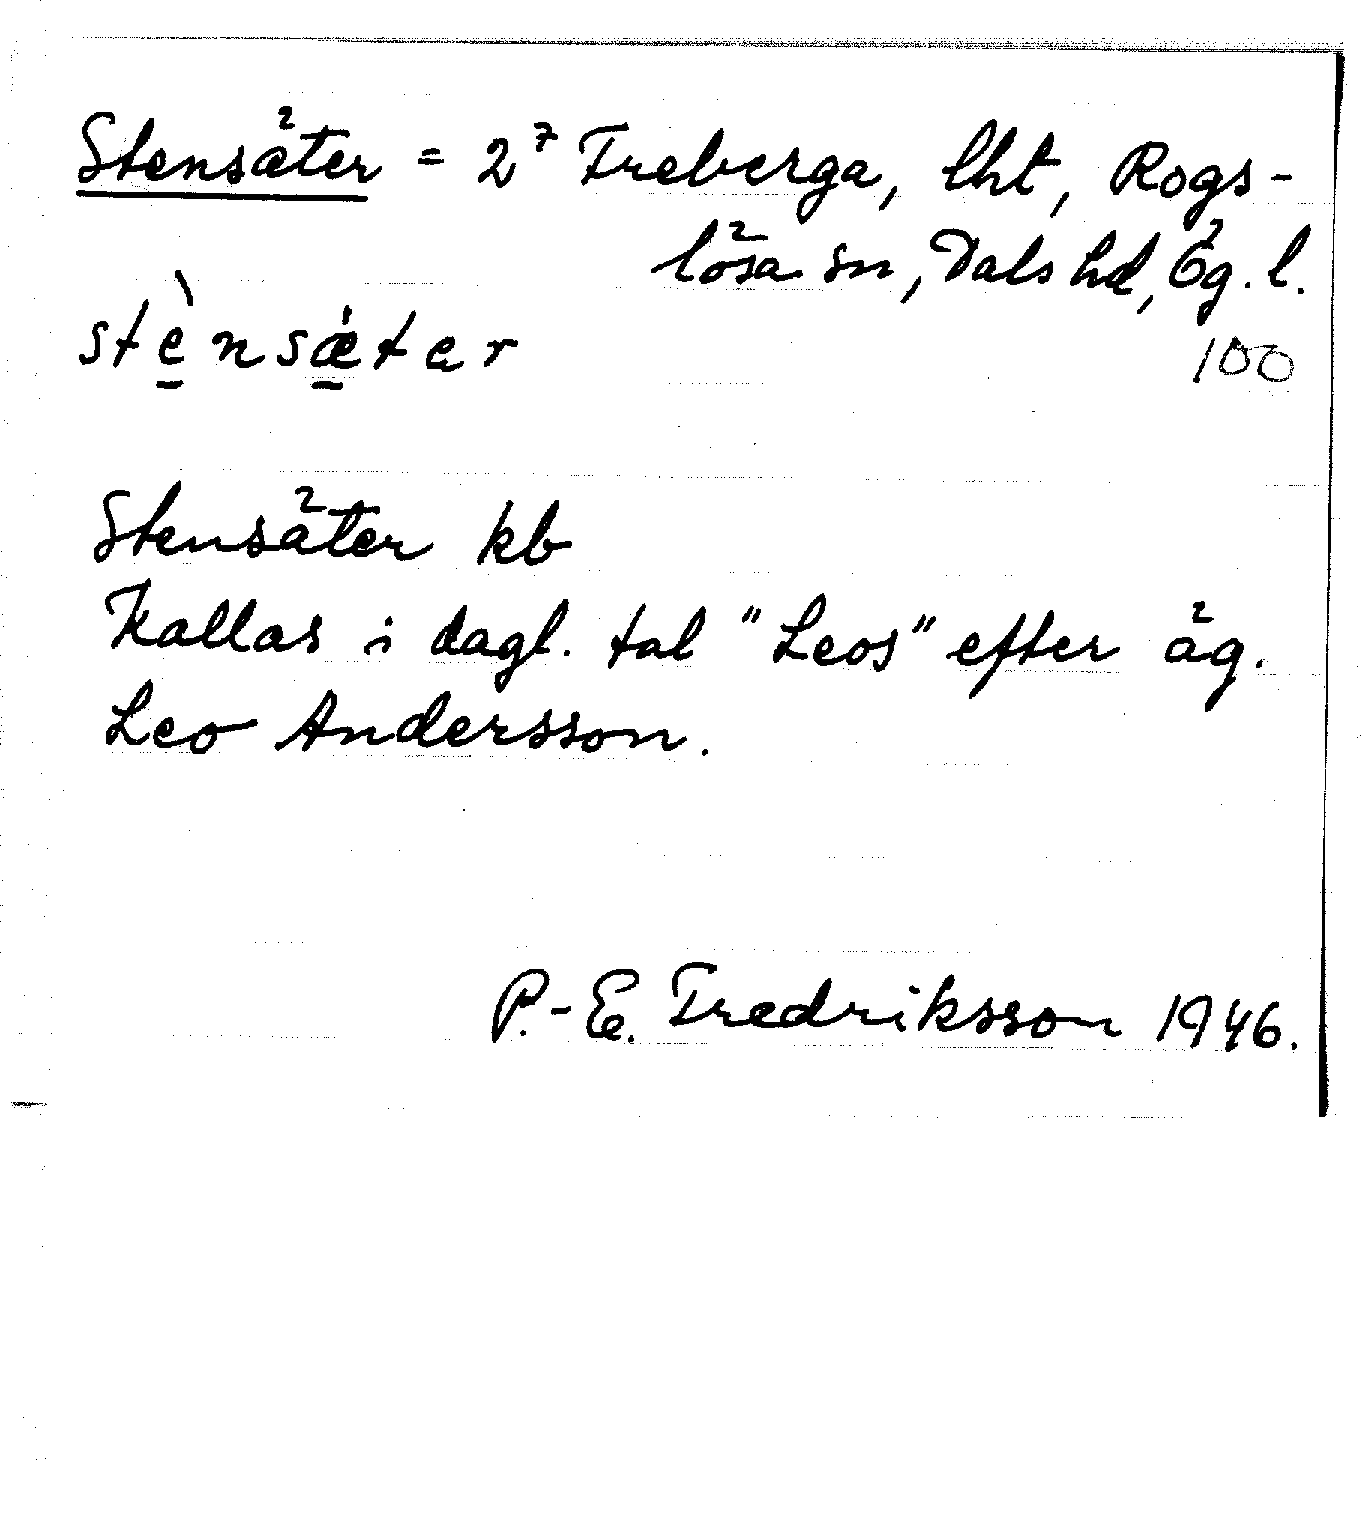 Stensäter = 2⁷ Treberga, lht, Rogs-
lösa sn, Dals hd, Ög. l.
stè̱nsǽ̱ter
100
Stensäter kb
Kallas i dagl. tal "Leos" efter äg.
Leo Andersson.
P.-E. Fredriksson 1946.